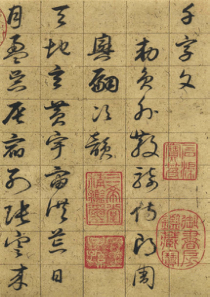 千字文
勅員外散騎侍郎周
興嗣次韻
天地玄黃宇宙洪荒日
月盈昃辰宿列張寒來
御書房鑑藏寶